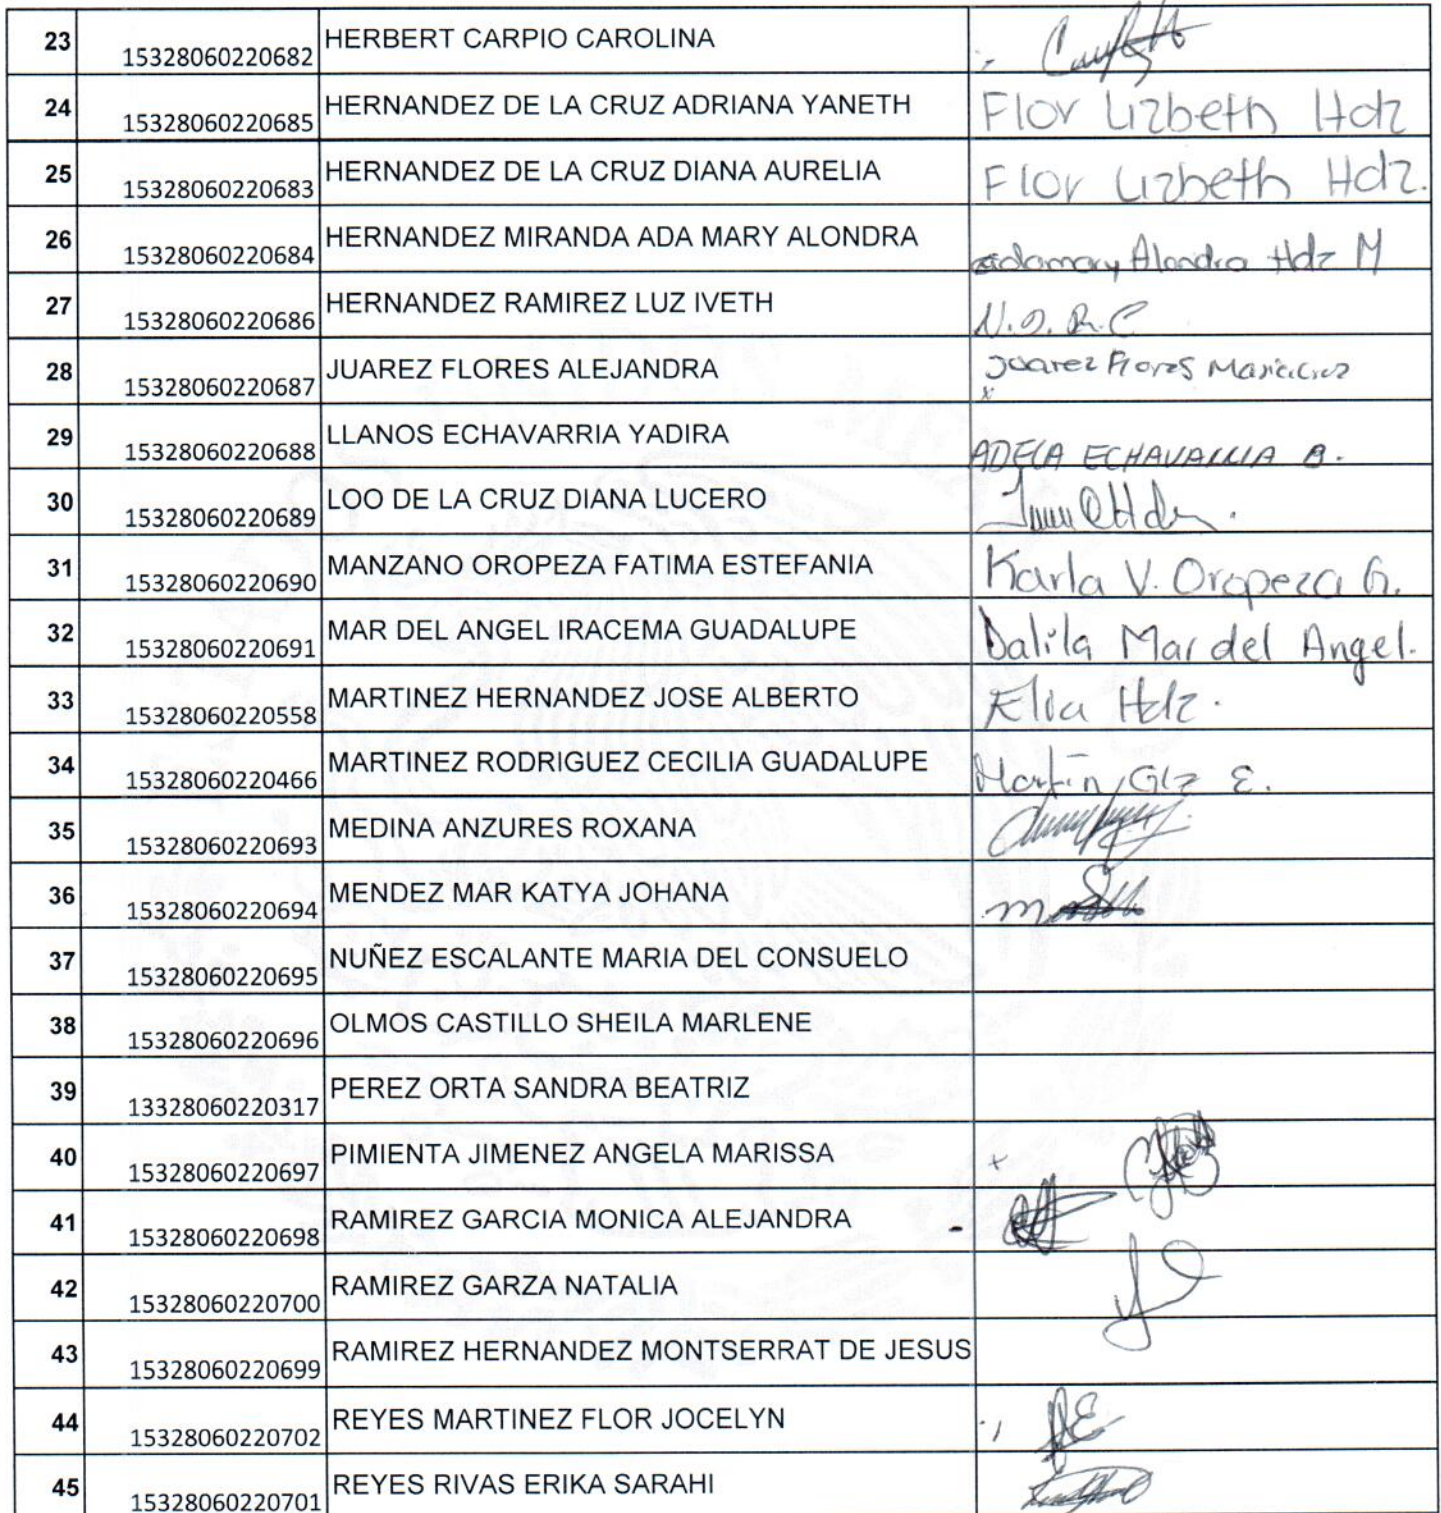 23 15328060220682 HERBERT CARPIO CAROLINA
24 15328060220685 HERNANDEZ DE LA CRUZ ADRIANA YANETH Flor Lizbeth Hdz
25 15328060220683 HERNANDEZ DE LA CRUZ DIANA AURELIA Flor Lizbeth Hdz.
26 15328060220684 HERNANDEZ MIRANDA ADA MARY ALONDRA adamary Alondra Hdz M
27 15328060220686 HERNANDEZ RAMIREZ LUZ IVETH
28 15328060220687 JUAREZ FLORES ALEJANDRA Juarez Flores Mariacruz
29 15328060220688 LLANOS ECHAVARRIA YADIRA ADELA ECHAVARRIA B.
30 15328060220689 LOO DE LA CRUZ DIANA LUCERO
31 15328060220690 MANZANO OROPEZA FATIMA ESTEFANIA Karla V. Oropeza G.
32 15328060220691 MAR DEL ANGEL IRACEMA GUADALUPE Dalila Mar del Angel.
33 15328060220558 MARTINEZ HERNANDEZ JOSE ALBERTO Elva Hdz.
34 15328060220466 MARTINEZ RODRIGUEZ CECILIA GUADALUPE Martin Glz E.
35 15328060220693 MEDINA ANZURES ROXANA
36 15328060220694 MENDEZ MAR KATYA JOHANA
37 15328060220695 NUÑEZ ESCALANTE MARIA DEL CONSUELO
38 15328060220696 OLMOS CASTILLO SHEILA MARLENE
39 13328060220317 PEREZ ORTA SANDRA BEATRIZ
40 15328060220697 PIMIENTA JIMENEZ ANGELA MARISSA
41 15328060220698 RAMIREZ GARCIA MONICA ALEJANDRA
42 15328060220700 RAMIREZ GARZA NATALIA
43 15328060220699 RAMIREZ HERNANDEZ MONTSERRAT DE JESUS
44 15328060220702 REYES MARTINEZ FLOR JOCELYN
45 15328060220701 REYES RIVAS ERIKA SARAHI